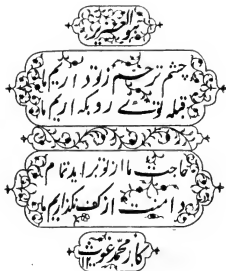 هو العزیز
چشم ترحم ز تو داریم ما
قبله توئی رو بکه آریم ما
حاجت ما از تو برآید تمام
دامنت از کف نگذاریم ما
کار محمد غوث